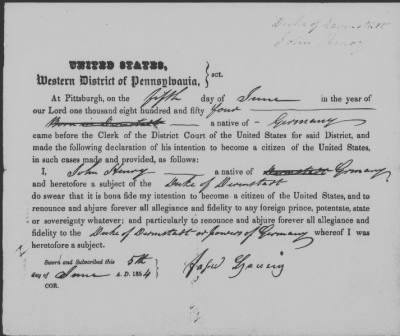 Duke of Darmstatt
John Henry
UNITED STATES,
Western District of Pennsylvania, } sct.
At Pittsburgh, on the fifth day of June in the year of
our Lord one thousand eight hundred and fifty four
Born in Darmstatt a native of Germany
came before the Clerk of the District Court of the United States for said District, and
made the following declaration of his intention to become a citizen of the United States,
in such cases made and provided, as follows:
I, John Henry a native of Darmstatt Germany
and heretofore a subject of the Duke of Dermstatt
do swear that it is bona fide my intention to become a citizen of the United States, and to
renounce and abjure forever all allegiance and fidelity to any foreign prince, potentate, state
or sovereignty whatever; and particularly to renounce and abjure forever all allegiance and
fidelity to the Duke of Dermstatt or powers of Germany whereof I was
heretofore a subject.
Sworn and Subscribed this 5th
day of June A. D. 1854
COR.